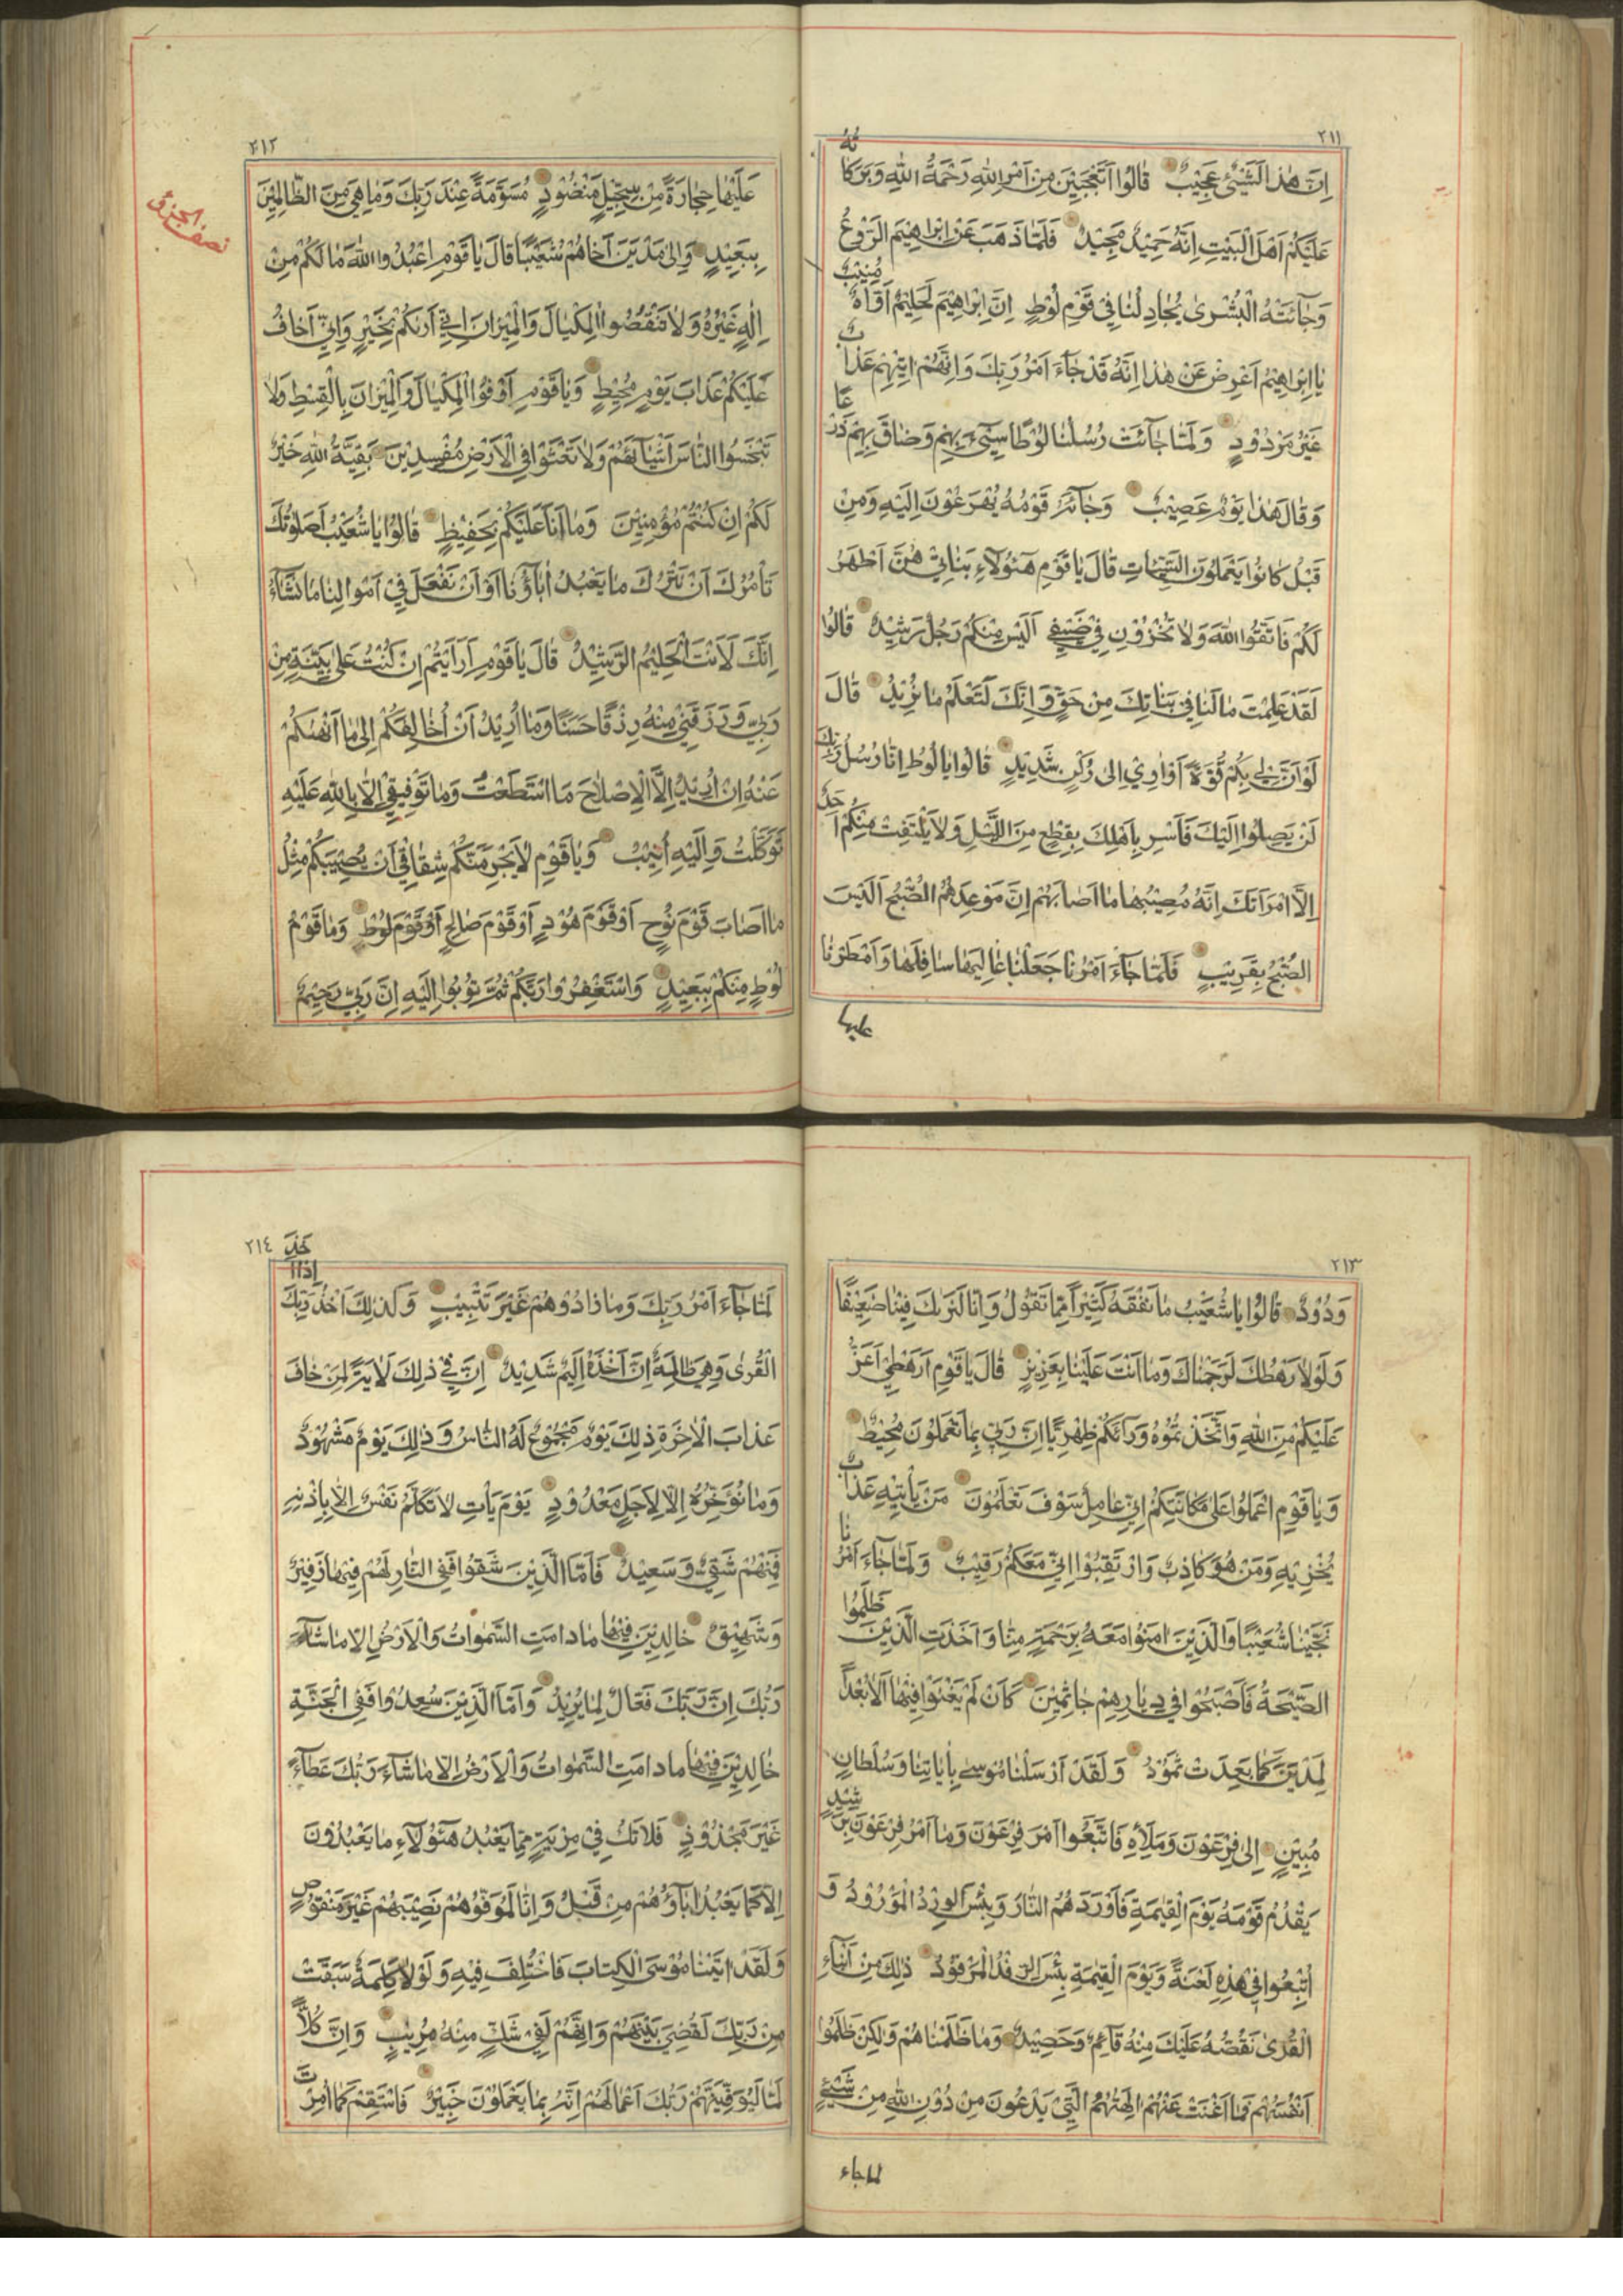 ٢١١
اِنَّ هٰذَا لَشَیْئٌ عَجٖیبٌ قٰالُوا اَتَعْجَبٖینَ مِنْ اَمْرِ اللّٰهِ رَحْمَةُ اللّٰهِ وَبَرَكٰاتُهُ
عَلَیْكُمْ اَهْلَ الْبَیْتِ اِنَّهُ حَمٖیدٌ مَجٖیدٌ فَلَمّٰا ذَهَبَ عَنْ اِبْرٰاهٖیمَ الرَّوْعُ
وَجٰآئَتْهُ الْبُشْرىٰ یُجٰادِلُنٰا فٖی قَوْمِ لُوْطٍ اِنَّ اِبْرٰاهٖیمَ لَحَلٖیمٌ اَوّٰاهٌ مُنٖیبٌ
یٰا اِبْرٰاهٖیمُ اَعْرِضْ عَنْ هٰذٰا اِنَّهُ قَدْ جٰآءَ اَمْرُ رَبِّكَ وَاِنَّهُمْ اٰتٖیهِمْ عَذٰابٌ
غَیْرُ مَرْدُوْدٍ وَلَمّٰا جٰآئَتْ رُسُلُنٰا لُوْطًا سٖیۤءَ بِهِمْ وَضٰاقَ بِهِمْ ذَرْعًا
وَقٰالَ هٰذٰا یَوْمٌ عَصٖیبٌ وَجٰآئَهُ قَوْمُهُ یُهْرَعُوْنَ اِلَیْهِ وَمِنْ
قَبْلُ كٰانُوا یَعْمَلُوْنَ السَّیِّئٰاتِ قٰالَ یٰا قَوْمِ هٰٓؤُلٰآءِ بَنٰاتٖی هُنَّ اَطْهَرُ
لَكُمْ فَاتَّقُوا اللّٰهَ وَلٰا تُخْزُوْنِ فٖی ضَیْفٖی اَلَیْسَ مِنْكُمْ رَجُلٌ رَشٖیدٌ قٰالُوا
لَقَدْ عَلِمْتَ مٰا لَنٰا فٖی بَنٰاتِكَ مِنْ حَقٍّ وَاِنَّكَ لَتَعْلَمُ مٰا نُرٖیدُ قٰالَ
لَوْ اَنَّ لٖی بِكُمْ قُوَّةً اَوْ اٰوٖی اِلىٰ رُكْنٍ شَدٖیدٍ قٰالُوا یٰا لُوْطُ اِنّٰا رُسُلُ رَبِّكَ
لَنْ یَصِلُوا اِلَیْكَ فَاَسْرِ بِاَهْلِكَ بِقِطْعٍ مِنَ اللَّیْلِ وَلٰا یَلْتَفِتْ مِنْكُمْ اَحَدٌ
اِلَّا امْرَاَتَكَ اِنَّهُ مُصٖیبُهٰا مٰا اَصٰابَهُمْ اِنَّ مَوْعِدَهُمُ الصُّبْحُ اَلَیْسَ
الصُّبْحُ بِقَرٖیبٍ فَلَمّٰا جٰآءَ اَمْرُنٰا جَعَلْنٰا عٰالِیَهٰا سٰافِلَهٰا وَاَمْطَرْنٰا
علیها
٢١٢
عَلَیْهٰا حِجٰارَةً مِنْ سِجّٖیلٍ مَنْضُوْدٍ مُسَوَّمَةً عِنْدَ رَبِّكَ وَمٰا هِیَ مِنَ الظّٰالِمٖینَ
نصف الجزء
بِبَعٖیدٍ وَاِلىٰ مَدْیَنَ اَخٰاهُمْ شُعَیْبًا قٰالَ یٰا قَوْمِ اعْبُدُوا اللّٰهَ مٰا لَكُمْ مِنْ
اِلٰهٍ غَیْرُهُ وَلٰا تَنْقُصُوا الْمِكْیٰالَ وَالْمٖیزٰانَ اِنّٖی اَرٰیكُمْ بِخَیْرٍ وَاِنّٖی اَخٰافُ
عَلَیْكُمْ عَذٰابَ یَوْمٍ مُحٖیطٍ وَیٰا قَوْمِ اَوْفُوا الْمِكْیٰالَ وَالْمٖیزٰانَ بِالْقِسْطِ وَلٰا
تَبْخَسُوا النّٰاسَ اَشْیٰآئَهُمْ وَلٰا تَعْثَوْا فِی الْاَرْضِ مُفْسِدٖیْنَ بَقِیَّةُ اللّٰهِ خَیْرٌ
لَكُمْ اِنْ كُنْتُمْ مُؤْمِنٖینَ وَمٰا اَنَا عَلَیْكُمْ بِحَفٖیظٍ قٰالُوا یٰا شُعَیْبُ اَصَلٰوتُكَ
تَاْمُرُكَ اَنْ نَتْرُكَ مٰا یَعْبُدُ اٰبٰآؤُنٰا اَوْ اَنْ نَفْعَلَ فٖی اَمْوٰالِنٰا مٰا نَشٰآءُ
اِنَّكَ لَاَنْتَ الْحَلٖیمُ الرَّشٖیدُ قٰالَ یٰا قَوْمِ اَرَاَیْتُمْ اِنْ كُنْتُ عَلىٰ بَیِّنَةٍ مِنْ
رَبّٖی وَرَزَقَنٖی مِنْهُ رِزْقًا حَسَنًا وَمٰا اُرٖیدُ اَنْ اُخٰالِفَكُمْ اِلىٰ مٰا اَنْهٰیكُمْ
عَنْهُ اِنْ اُرٖیدُ اِلَّا الْاِصْلٰاحَ مَا اسْتَطَعْتُ وَمٰا تَوْفٖیقٖی اِلّٰا بِاللّٰهِ عَلَیْهِ
تَوَكَّلْتُ وَاِلَیْهِ اُنٖیبُ وَیٰا قَوْمِ لٰا یَجْرِمَنَّكُمْ شِقٰاقٖی اَنْ یُصٖیبَكُمْ مِثْلُ
مٰا اَصٰابَ قَوْمَ نُوْحٍ اَوْ قَوْمَ هُوْدٍ اَوْ قَوْمَ صٰالِحٍ اَوْ قَوْمَ لُوْطٍ وَمٰا قَوْمُ
لُوْطٍ مِنْكُمْ بِبَعٖیدٍ وَاسْتَغْفِرُوا رَبَّكُمْ ثُمَّ تُوْبُوا اِلَیْهِ اِنَّ رَبّٖی رَحٖیمٌ
٢١٣
وَدُوْدٌ قٰالُوا یٰا شُعَیْبُ مٰا نَفْقَهُ كَثٖیراً مِمّٰا تَقُوْلُ وَاِنّٰا لَنَرٰیكَ فٖینٰا ضَعٖیفًا
وَلَوْلٰا رَهْطُكَ لَرَجَمْنٰاكَ وَمٰا اَنْتَ عَلَیْنٰا بِعَزٖیزٍ قٰالَ یٰا قَوْمِ اَرَهْطٖی اَعَزُّ
عَلَیْكُمْ مِنَ اللّٰهِ وَاتَّخَذْتُمُوْهُ وَرٰآئَكُمْ ظِهْرِیًّا اِنَّ رَبّٖی بِمٰا تَعْمَلُوْنَ مُحٖیطٌ
وَیٰا قَوْمِ اعْمَلُوا عَلىٰ مَكٰانَتِكُمْ اِنّٖی عٰامِلٌ سَوْفَ تَعْلَمُوْنَ مَنْ یَاْتٖیهِ عَذٰابٌ
یُخْزٖیهِ وَمَنْ هُوَ كٰاذِبٌ وَارْتَقِبُوْا اِنّٖی مَعَكُمْ رَقٖیبٌ وَلَمّٰا جٰآءَ اَمْرُنٰا
نَجَّیْنٰا شُعَیْبًا وَالَّذٖیْنَ اٰمَنُوْا مَعَهُ بِرَحْمَةٍ مِنّٰا وَاَخَذَتِ الَّذٖیْنَ ظَلَمُوْا
الصَّیْحَةُ فَاَصْبَحُوا فٖی دِیٰارِهِمْ جٰاثِمٖیْنَ كَاَنْ لَمْ یَغْنَوْا فٖیهٰا اَلٰا بُعْداً
لِمَدْیَنَ كَمٰا بَعِدَتْ ثَمُوْدُ وَلَقَدْ اَرْسَلْنٰا مُوْسىٰ بِاٰیٰاتِنٰا وَسُلْطٰانٍ
مُبٖیْنٍ اِلىٰ فِرْعَوْنَ وَمَلَاِهٖ فَاتَّبَعُوا اَمْرَ فِرْعَوْنَ وَمٰا اَمْرُ فِرْعَوْنَ بِرَشٖیْدٍ
یَقْدُمُ قَوْمَهُ یَوْمَ الْقِیٰمَةِ فَاَوْرَدَهُمُ النّٰارَ وَبِئْسَ الْوِرْدُ الْمَوْرُوْدُ وَ
اُتْبِعُوا فٖی هٰذِهٖ لَعْنَةً وَیَوْمَ الْقِیٰمَةِ بِئْسَ الرِّفْدُ الْمَرْفُوْدُ ذٰلِكَ مِنْ اَنْبٰآءِ
الْقُرىٰ نَقُصُّهُ عَلَیْكَ مِنْهٰا قٰآئِمٌ وَحَصٖیْدٌ وَمٰا ظَلَمْنٰاهُمْ وَلٰكِنْ ظَلَمُوْا
اَنْفُسَهُمْ فَمٰا اَغْنَتْ عَنْهُمْ اٰلِهَتُهُمُ الَّتٖی یَدْعُوْنَ مِنْ دُوْنِ اللّٰهِ مِنْ شَیْئٍ
لما جاء
٢١٤
لَمّٰا جٰآءَ اَمْرُ رَبِّكَ وَمٰا زٰادُوْهُمْ غَیْرَ تَتْبٖیبٍ وَكَذٰلِكَ اَخْذُ رَبِّكَ اِذٰا اَخَذَ
الْقُرىٰ وَهِیَ ظٰالِمَةٌ اِنَّ اَخْذَهُ اَلٖیْمٌ شَدٖیْدٌ اِنَّ فٖی ذٰلِكَ لَاٰیَةً لِمَنْ خٰافَ
عَذٰابَ الْاٰخِرَةِ ذٰلِكَ یَوْمٌ مَجْمُوْعٌ لَهُ النّٰاسُ وَذٰلِكَ یَوْمٌ مَشْهُوْدٌ
وَمٰا نُؤَخِّرُهُ اِلّٰا لِاَجَلٍ مَعْدُوْدٍ یَوْمَ یَاْتِ لٰا تَكَلَّمُ نَفْسٌ اِلّٰا بِاِذْنِهٖ
فَمِنْهُمْ شَقِیٌّ وَسَعٖیْدٌ فَاَمَّا الَّذٖیْنَ شَقُوْا فَفِی النّٰارِ لَهُمْ فٖیْهٰا زَفٖیْرٌ
وَشَهٖیْقٌ خٰالِدٖیْنَ فٖیْهٰا مٰا دٰامَتِ السَّمٰوٰاتُ وَالْاَرْضُ اِلّٰا مٰا شٰآءَ
رَبُّكَ اِنَّ رَبَّكَ فَعّٰالٌ لِمٰا یُرٖیْدُ وَاَمَّا الَّذٖیْنَ سُعِدُوْا فَفِی الْجَنَّةِ
خٰالِدٖیْنَ فٖیْهٰا مٰا دٰامَتِ السَّمٰوٰاتُ وَالْاَرْضُ اِلّٰا مٰا شٰآءَ رَبُّكَ عَطٰآءً
غَیْرَ مَجْذُوْذٍ فَلٰا تَكُ فٖی مِرْیَةٍ مِمّٰا یَعْبُدُ هٰٓؤُلٰآءِ مٰا یَعْبُدُوْنَ
اِلّٰا كَمٰا یَعْبُدُ اٰبٰآؤُهُمْ مِنْ قَبْلُ وَاِنّٰا لَمُوَفُّوْهُمْ نَصٖیْبَهُمْ غَیْرَ مَنْقُوْصٍ
وَلَقَدْ اٰتَیْنٰا مُوْسَى الْكِتٰابَ فَاخْتُلِفَ فٖیْهِ وَلَوْلٰا كَلِمَةٌ سَبَقَتْ
مِنْ رَبِّكَ لَقُضِیَ بَیْنَهُمْ وَاِنَّهُمْ لَفٖی شَكٍّ مِنْهُ مُرٖیْبٍ وَاِنَّ كُلّاً
لَمّٰا لَیُوَفِّیَنَّهُمْ رَبُّكَ اَعْمٰالَهُمْ اِنَّهُ بِمٰا یَعْمَلُوْنَ خَبٖیْرٌ فَاسْتَقِمْ كَمٰا اُمِرْتَ